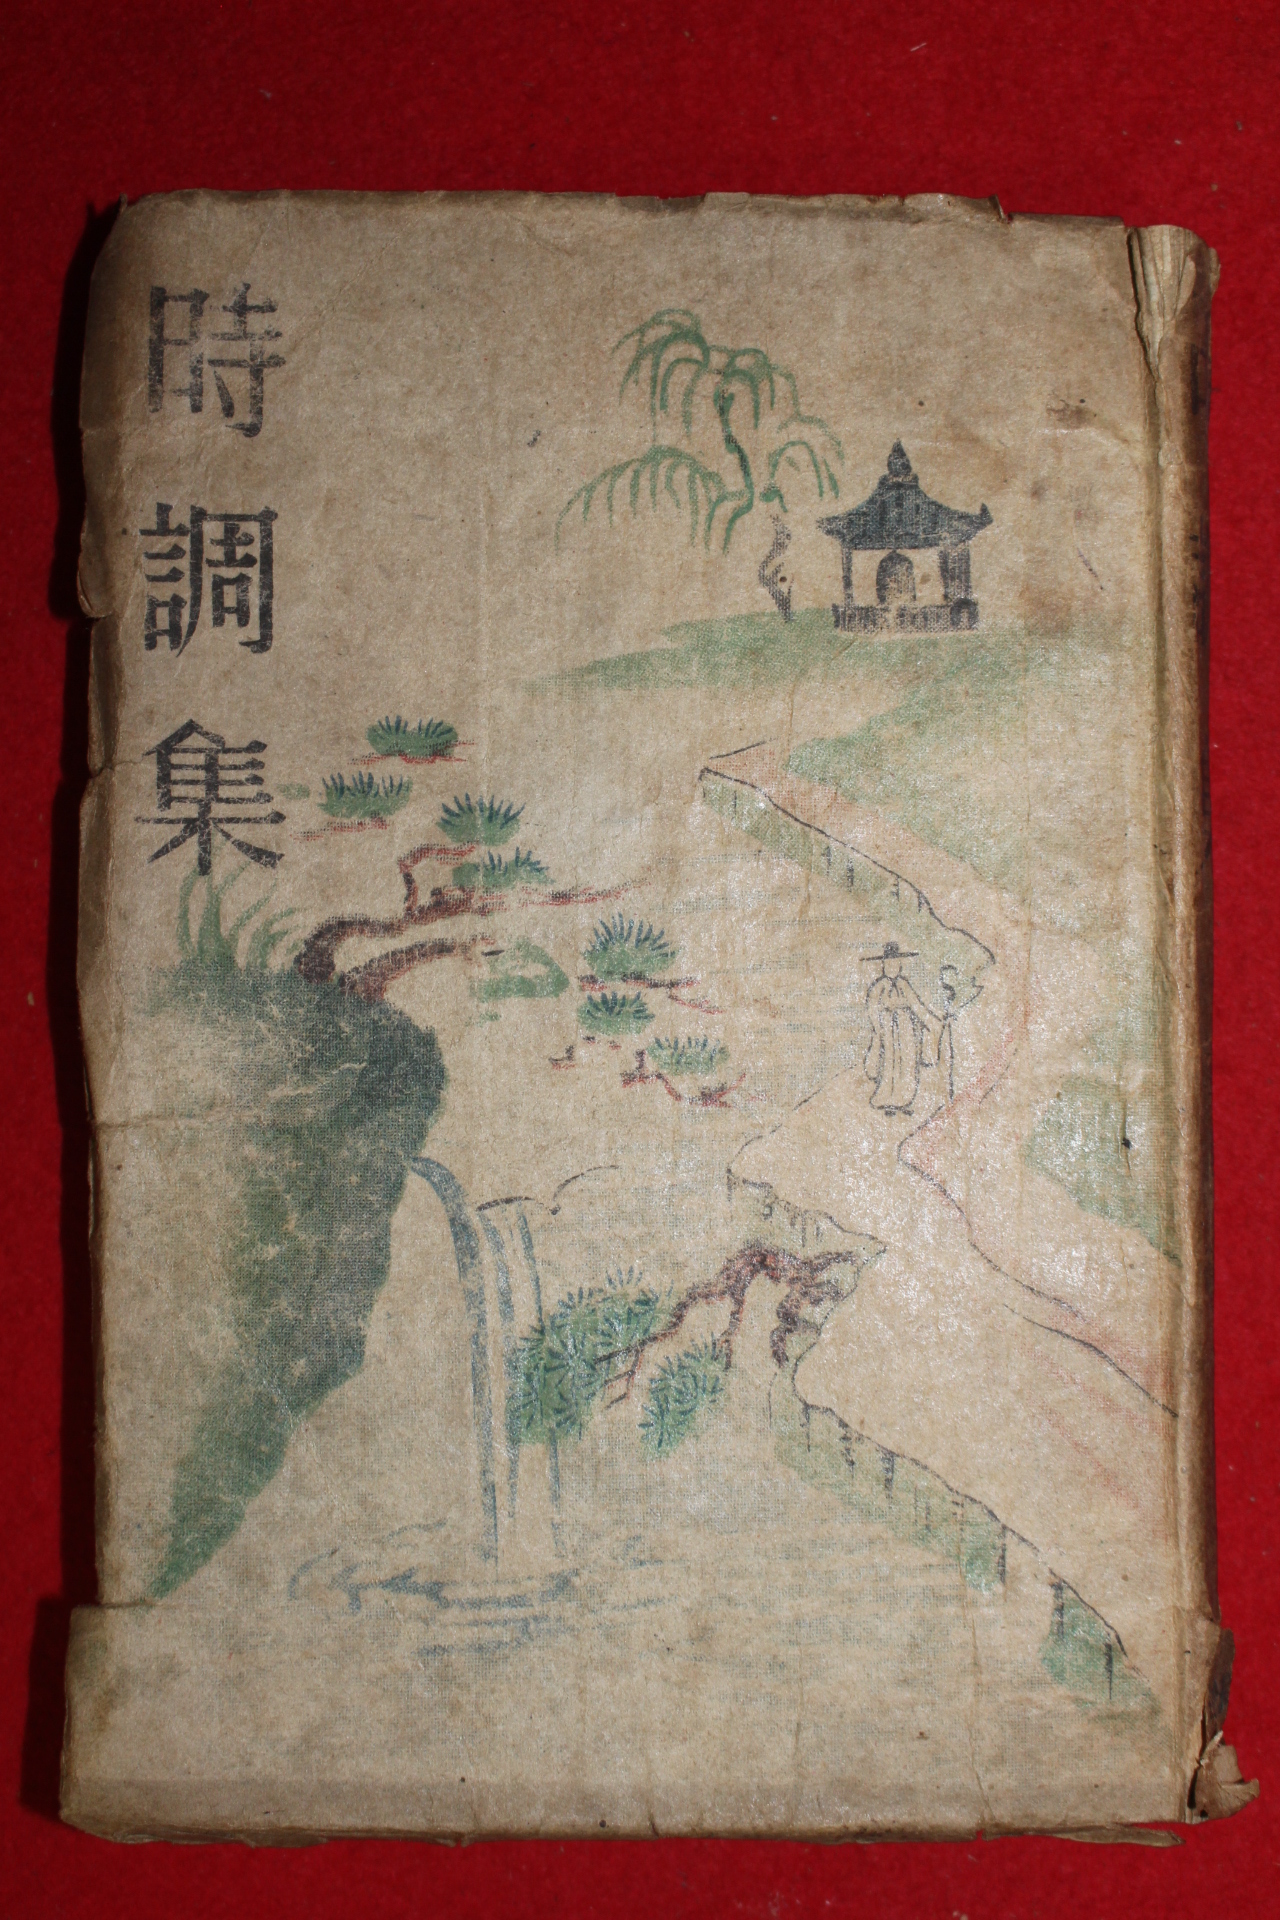 時調集